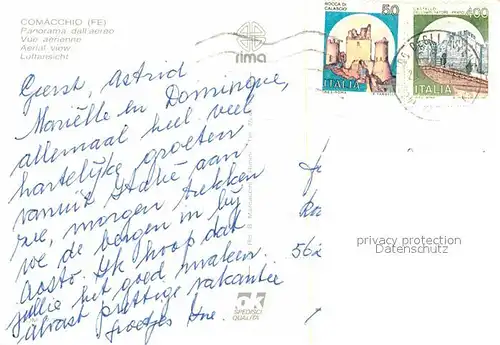 COMACCHIO (FE)
Panorama dall'aereo
Vue aérienne
Aerial view
Luftansicht
rima
ROCCA DI
CALASCIO
50
ITALIA
400
ITALIA
Gerst, Astrid
Mariëlle en Dominique,
allemaal heel veel
hartelijke groeten
vanuit Italië aan
zee, morgen trekken
we de bergen in bij
Aosta. Ik hoop dat
jullie het goed maken.
alvast prettige vakantie
groetjes
562
privacy protection
Datenschutz
OK
SPEDISCI
QUALITÀ